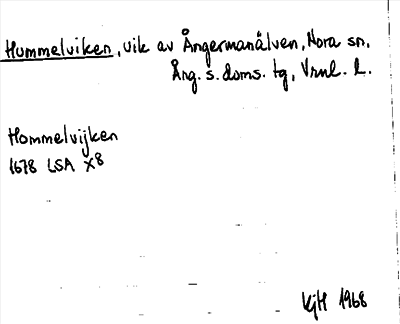 Hummelviken, vik av Ångermanälven, Nora sn,
Ång. s. doms. tg, Vrnl. l.
Hommelvijken
1678 LSA X8
KjH 1968